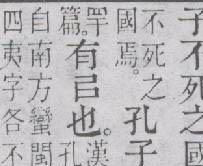 子不死之國
不死之
國焉。
孔子
罕
篇。
有㠯也。
漢
孔
自南方蠻閩
四夷字各不